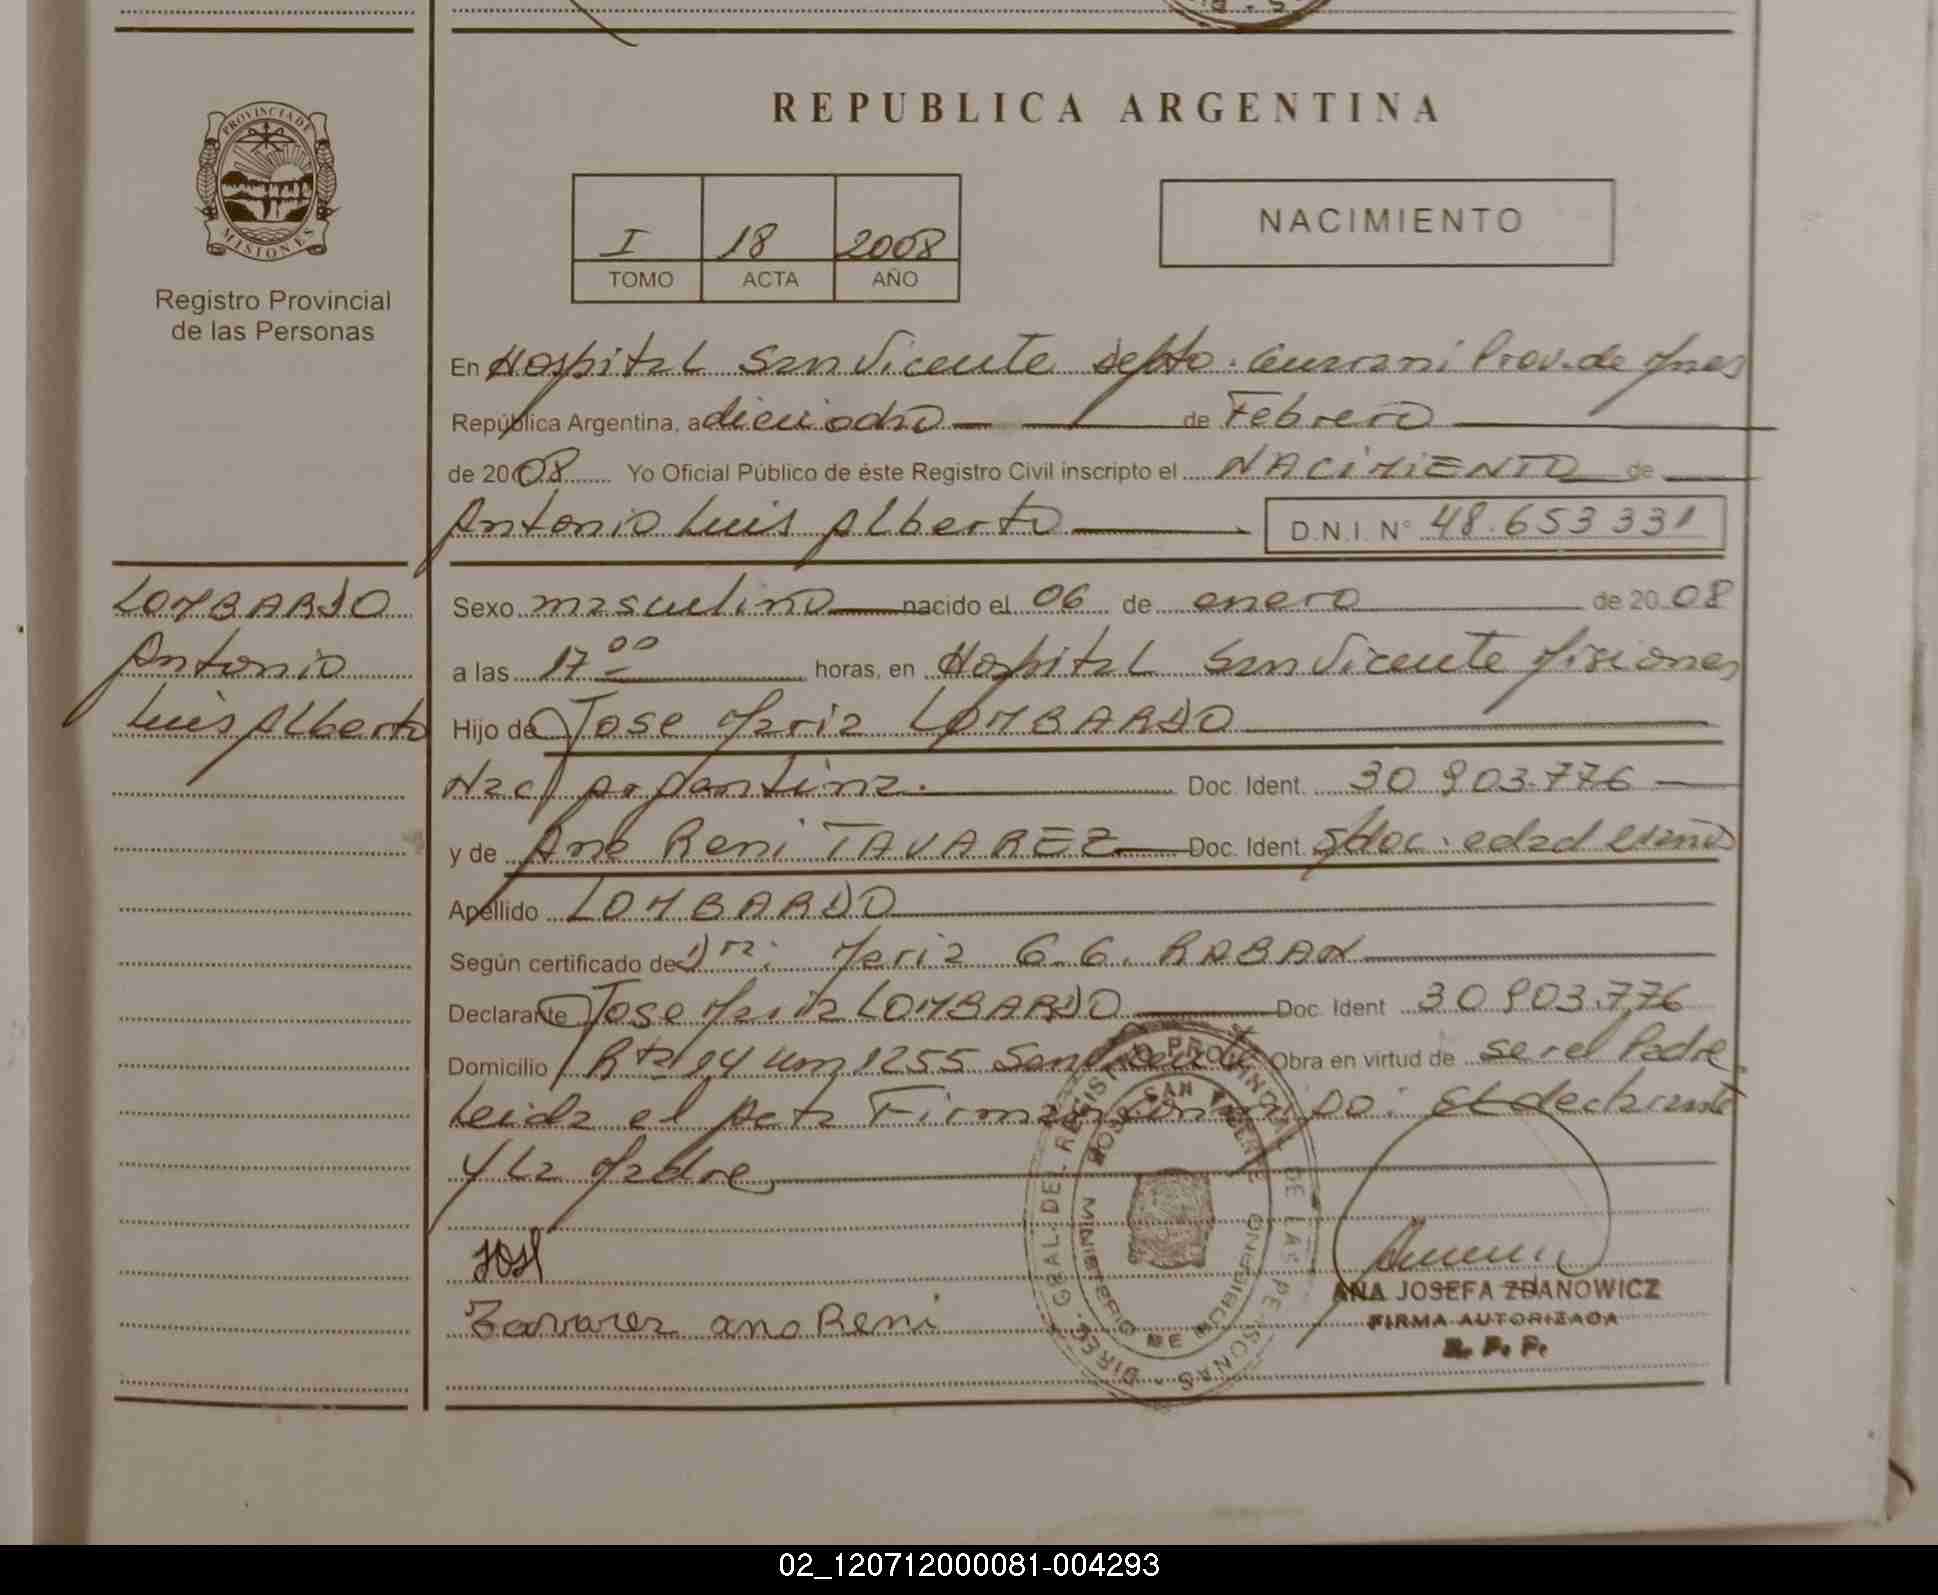 REPUBLICA ARGENTINA
PROVINCIA DE
MISIONES
Registro Provincial
de las Personas
I 18 2008
TOMO ACTA AÑO
NACIMIENTO
En Hospital San Vicente depto. Guarani Prov. de Mnes
República Argentina, a dieciocho de Febrero
de 2008 Yo Oficial Público de éste Registro Civil inscripto el NACIMIENTO de
Antonio Luis Alberto D.N.I. N° 48.653 331
LOMBARDO
Antonio
Luis Alberto
Sexo masculino nacido el 06 de enero de 2008
a las 17 00 horas, en Hospital San Vicente Misiones
Hijo de Jose Maria LOMBARDO
Nac argentina. Doc. Ident. 30 903.776
y de Ana Reni TAVAREZ Doc. Ident. s/doc. edad
Apellido LOMBARDO
Según certificado de Dra: Maria G. G.
Declarante Jose Maria LOMBARDO Doc. Ident 30 903.776
Domicilio Rta 14 km 1255 San Vicente Obra en virtud de ser el Padre
Leida el acta Firman conmigo: El declarante
y La Madre
Tavarez ana Reni
DIREC. GRAL. DEL REGISTRO PROVINCIAL DE LAS PERSONAS
HOSP. SAN VICENTE
MINISTERIO DE GOBIERNO
ANA JOSEFA ZDANOWICZ
FIRMA AUTORIZADA
R. P. P.
02_120712000081-004293